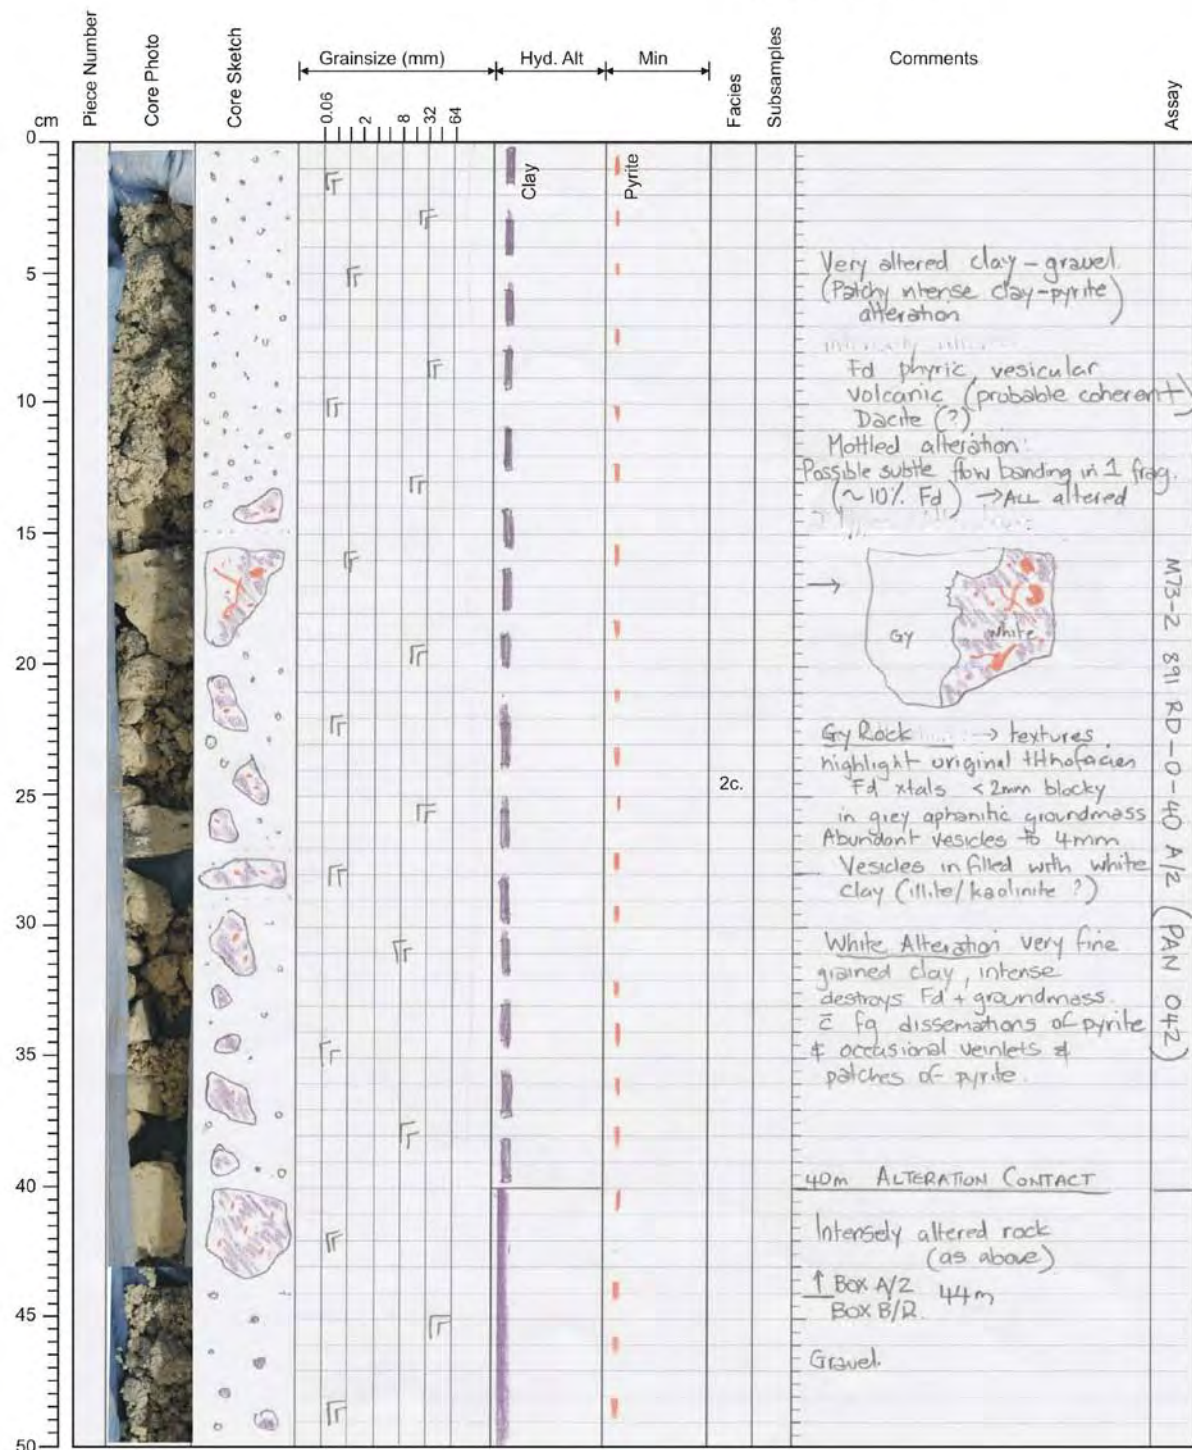 Piece Number
Core Photo
Core Sketch
Grainsize (mm)
Hyd. Alt
Min
Facies
Subsamples
Comments
Assay
cm
0.06
2
8
32
64
0
5
10
15
20
25
30
35
40
45
50
Clay
Pyrite
2c.
Very altered clay-gravel.
(Patchy intense clay-pyrite)
alteration
Fd phyric vesicular
volcanic (probable coherent)
Dacite (?)
Mottled alteration:
Possible subtle flow banding in 1 frag.
(~10% Fd) → ALL altered
→
Gy
White
Gy Rock → textures
highlight original
Fd xtals <2mm blocky
in grey aphanitic groundmass
Abundant vesicles to 4mm
Vesicles infilled with white
clay (illite/kaolinite ?)
White Alteration very fine
grained clay, intense
destroys Fd + groundmass.
c̄ fg dissemations of pyrite
& occasional veinlets &
patches of pyrite.
40m ALTERATION CONTACT
Intensely altered rock
(as above)
↑ Box A/2 44m
Box B/2.
Gravel.
M73-2 891 RD-0-40 A/2 (PAN 042)